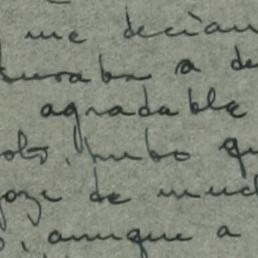 me decían
a de
agradable
hubo qu
goze de much
aunque a